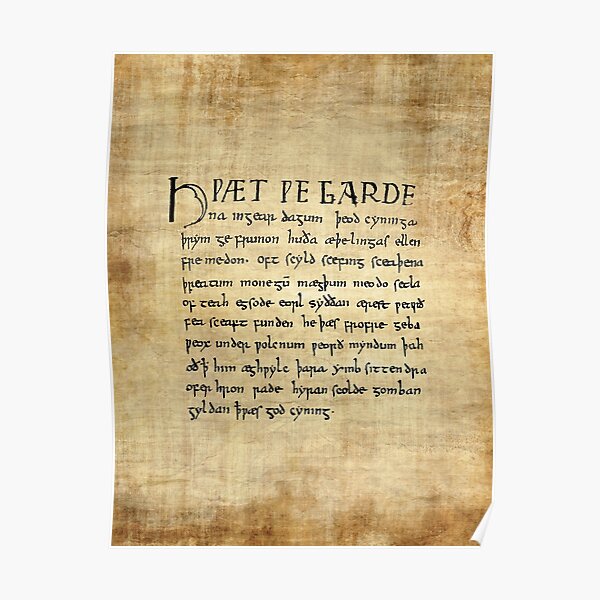 HǷÆT ǷE GARDE
na ingear dagum þeod cyninga
þrym ge frunon huða æþelingas ellen
fre medon. oft scyld scefing sceaþena
þreatum monegū mægþum meodo setla
of teah egsode eorl syððan ærest ƿearð
fea sceaft funden he þæs frofre geba
ƿeox under ƿolcnum ƿeorð myndum þah
oð ꝥ him æghƿylc þara ymb sittendra
ofer hron rade hyran scolde gomban
gyldan ꝥƿæs god cyning.